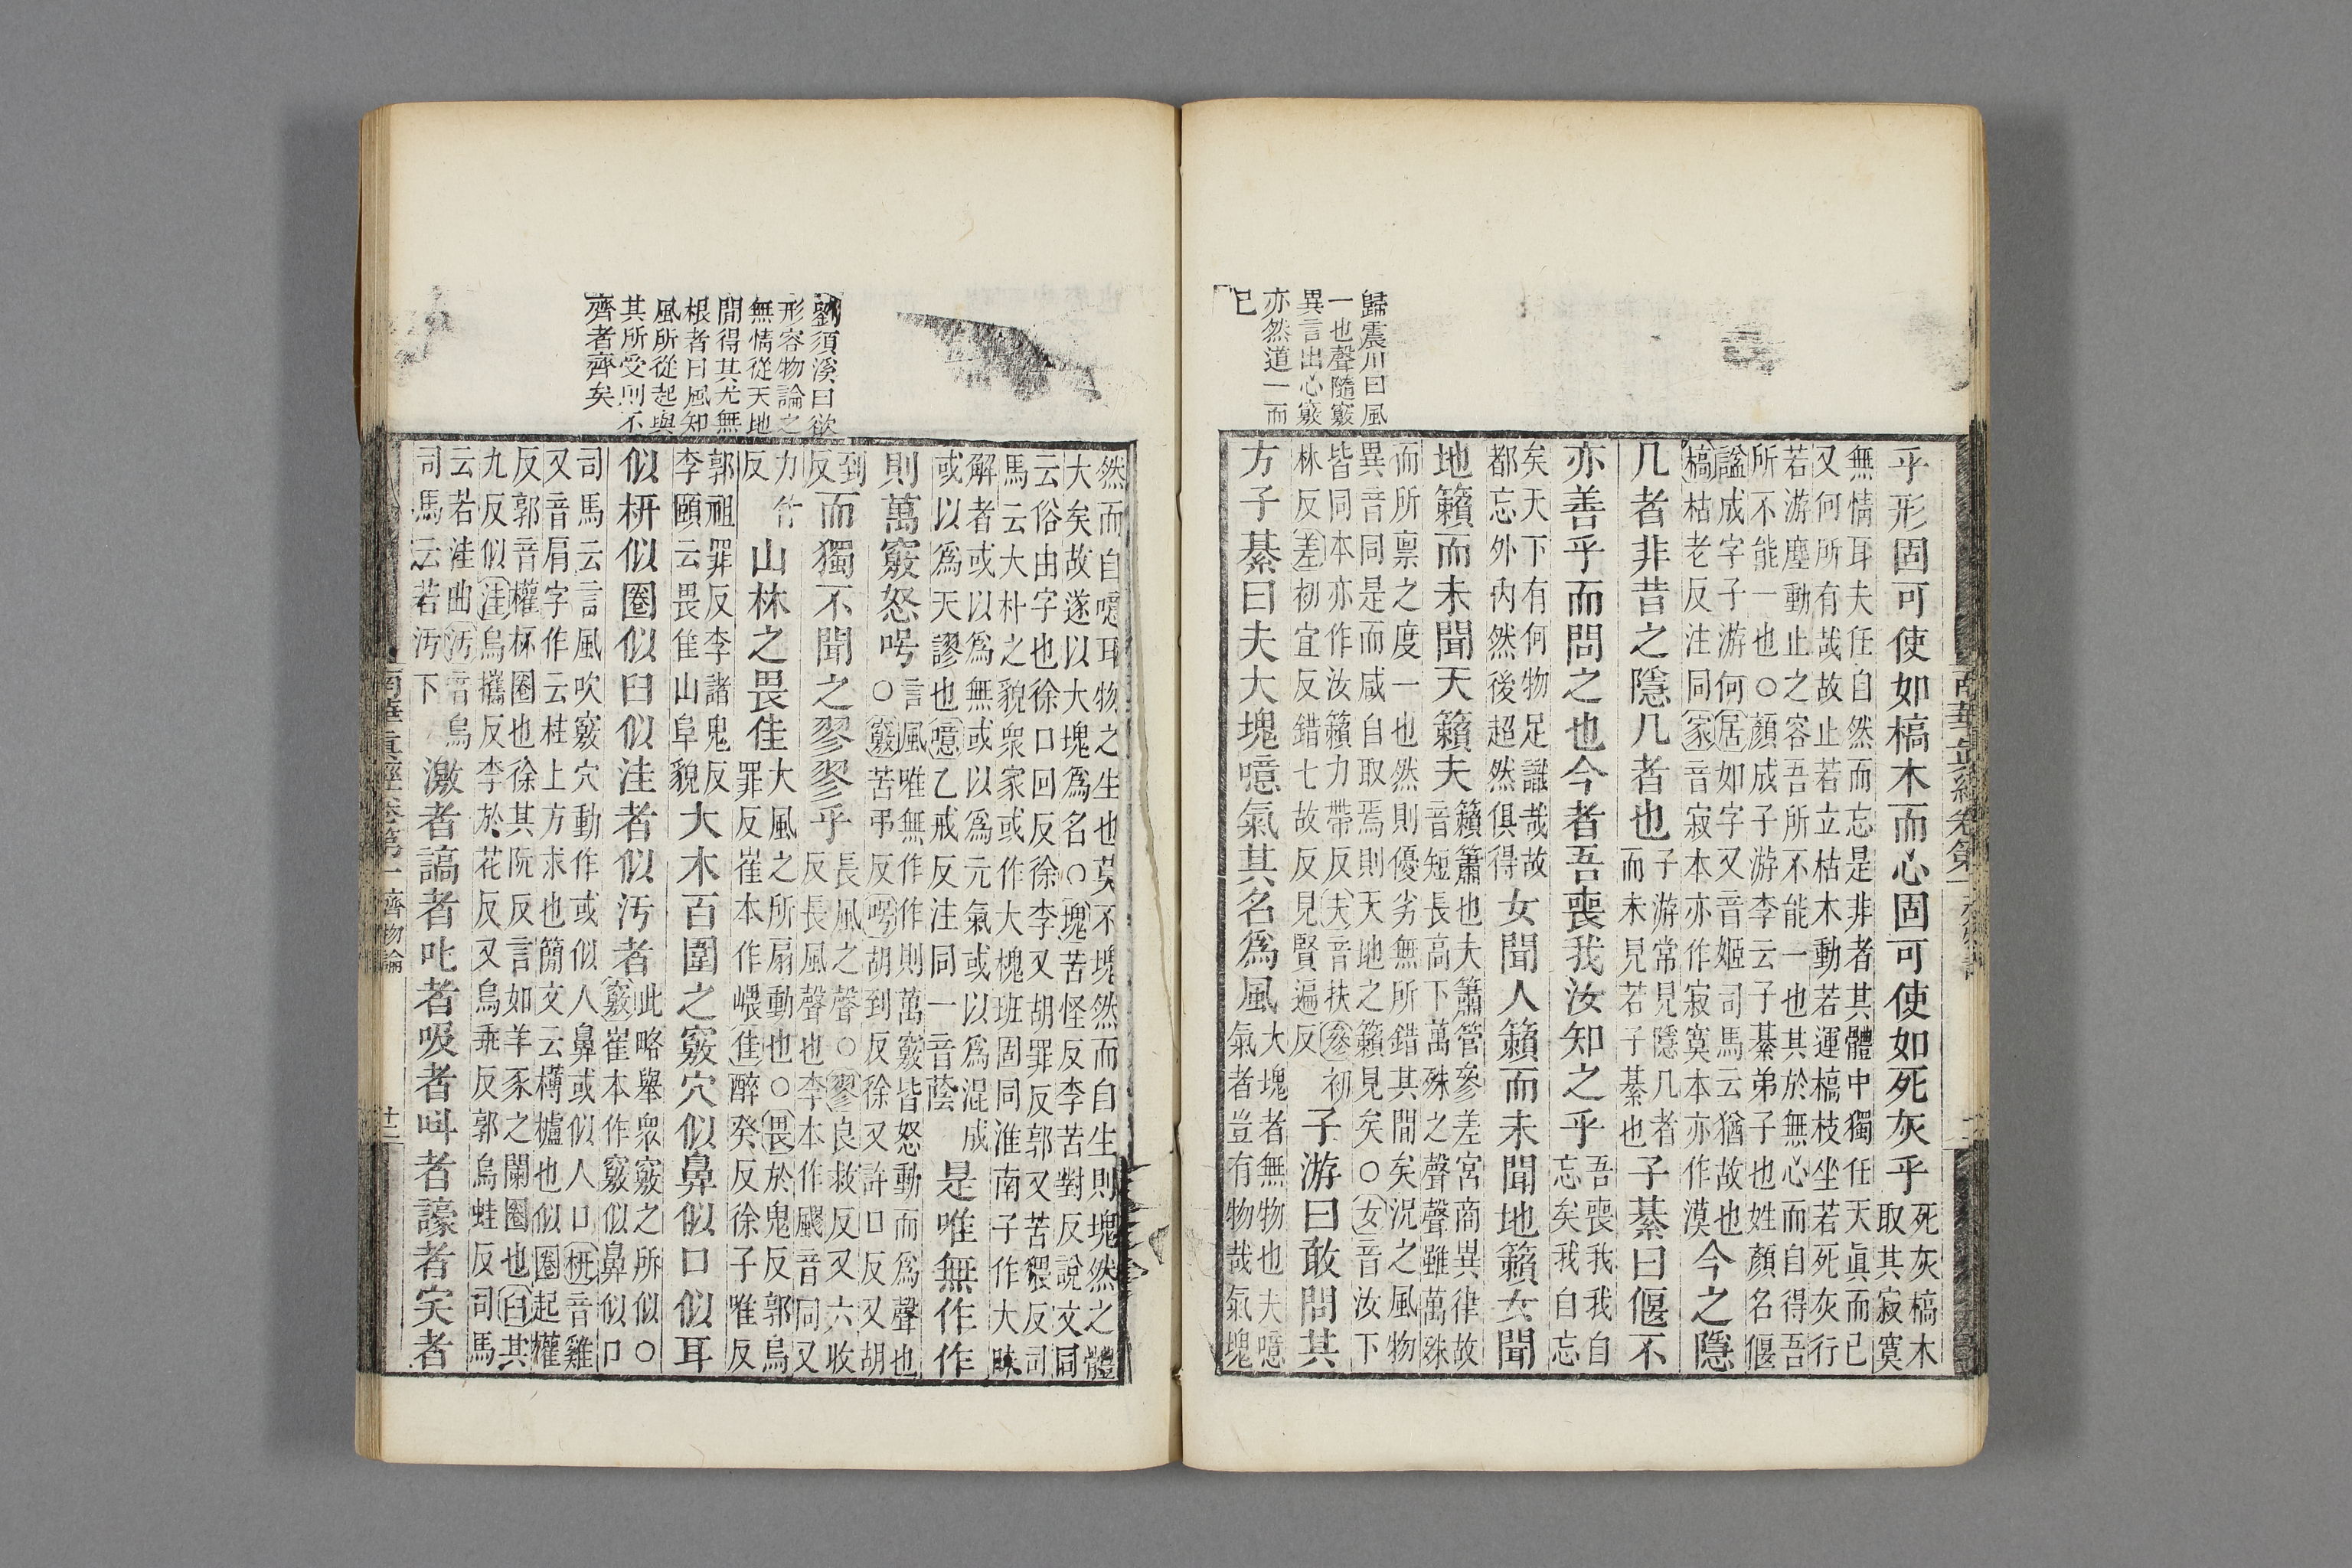 歸震川曰風
一也聲隨竅
異言出心竅
亦然道一而
已
乎形固可使如槁木而心固可使如死灰乎死灰槁木
取其寂寞
無情耳夫任自然而忘是非者其體中獨任天眞而已
又何所有哉故止若立枯木動若運槁枝坐若死灰行
若游塵動止之容吾所不能一也其於無心而自得吾
所不能一也○顏成子游李云子綦弟子也姓顏名偃
諡成字子游何居如字又音姬司馬云猶故也
槁枯老反注同家音寂本亦作寂寞本亦作漠今之隱
几者非昔之隱几者也子游常見隱几者
而未見若子綦也子綦曰偃不
亦善乎而問之也今者吾喪我汝知之乎吾喪我我自
忘矣我自忘
矣天下有何物足識哉故
都忘外內然後超然俱得女聞人籟而未聞地籟女聞
地籟而未聞天籟夫籟簫也夫簫管參差宮商異律故
音短長高下萬殊之聲聲雖萬殊
而所禀之度一也然則優劣無所錯其閒矣況之風物
異音同是而咸自取焉則天地之籟見矣○女音汝下
皆同本亦作汝籟力帶反夫音扶參初
林反差初宜反錯七故反見賢遍反子游曰敢問其
方子綦曰夫大塊噫氣其名爲風大塊者無物也夫噫
氣者豈有物哉氣塊
劉須溪曰欲
形容物論之
無情從天地
閒得其尤無
根者曰風知
風所從起與
其所受則不
齊者齊矣
然而自噫耳物之生也莫不塊然而自生則塊然之體
大矣故遂以大塊爲名○塊苦怪反李苦對反說文同
云俗由字也徐口回反徐李又胡罪反郭又苦猥反司
馬云大朴之貌衆家或作大槐班固同淮南子作大昧
解者或以爲無或以爲元氣或以爲混成
或以爲天謬也噫乙戒反注同一音蔭是唯無作作
則萬竅怒呺言風唯無作作則萬竅皆怒動而爲聲也
○竅苦弔反呺胡到反徐又許口反又胡
到
反而獨不聞之翏翏乎長風之聲○翏良救反又六收
反長風聲也李本作飂音同又
力竹
反山林之畏佳大風之所扇動也○畏於鬼反郭烏
罪反崔本作嵔佳醉癸反徐子唯反
郭祖罪反李諸鬼反
李頤云畏隹山阜貌大木百圍之竅穴似鼻似口似耳
似枅似圈似臼似洼者似污者此略舉衆竅之所似○
竅崔本作窾似鼻似口
司馬云言風吹竅穴動作或似人鼻或似人口枅音雞
又音肩字作云柱上方求也簡文云欂櫨也似圈起權
反郭音權杯圈也徐其阮反言如羊豕之闌圈也臼其
九反似洼烏攜反李於花反又烏乖反郭烏蛙反司馬
云若洼曲污音烏
司馬云若污下激者謞者叱者吸者叫者譹者宎者
南華眞經卷第一 齊物論 十二